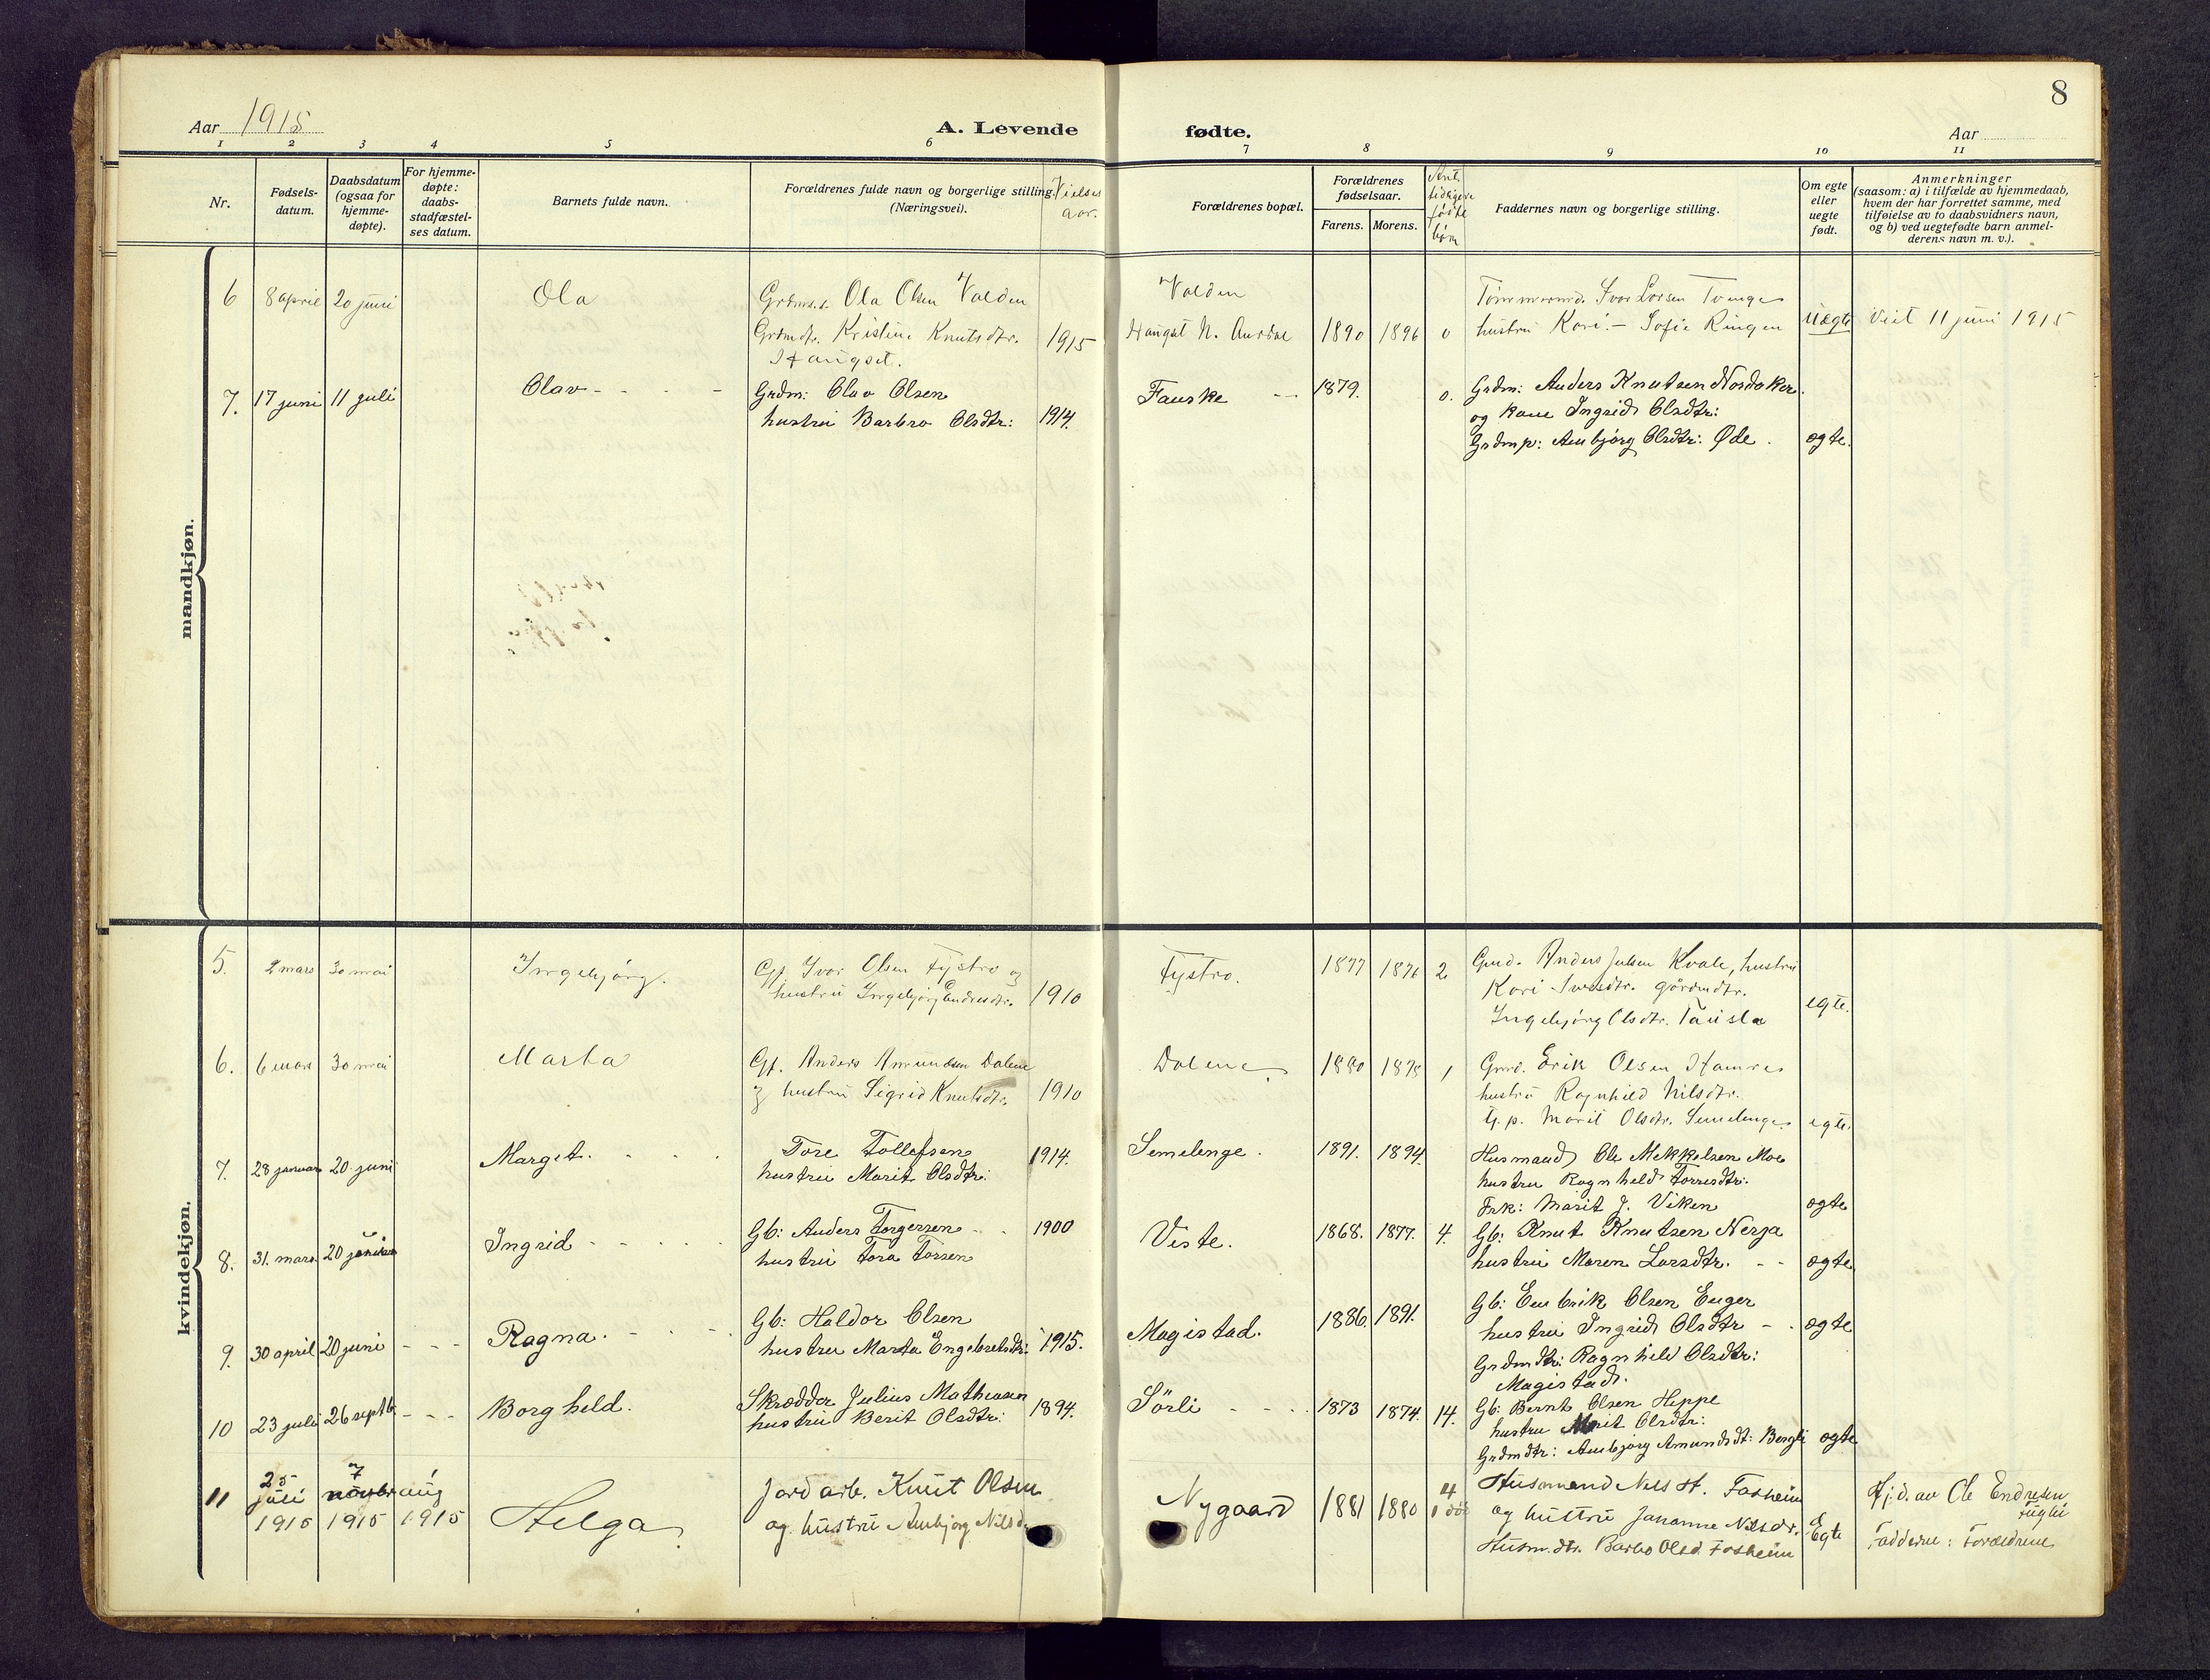 8
Aar 1915
A. Levende fødte.
Aar
1 2 3 4 5 6 7 8 9 10 11
Nr.
Fødsels-
datum.
Daabsdatum
(ogsaa for
hjemme-
døpte).
For hjemme-
døpte:
daabs-
stadfæstel-
ses datum.
Barnets fulde navn.
Forældrenes fulde navn og borgerlige stilling.
(Næringsvei).
Vielses
aar.
Forældrenes bopæl.
Forældrenes
fødselsaar.
Farens. Morens.
Ant.
tidligere
fødte
børn
Faddernes navn og borgerlige stilling.
Om egte
eller
uegte
født.
Anmerkninger
(saasom: a) i tilfælde av hjemmedaab,
hvem der har forrettet samme, med
tilføielse av to daabsvidners navn,
og b) ved uegtefødte barn anmel-
derens navn m. v.).
mandkjøn.
6 8 april 20 juni Ola
Ola Olsen Valden
Grdmdtr. Kristine Knutsdtr.
Haugset.
1915
Valden
N. Aurdal 1890 1896 0
Ivar Larsen
hustru Kari - Sofie Ringen
Uegte
Viet 11 juni 1915
7. 17 juni 11 juli Olav
Grdm: Olav Olsen
hustru Barbro Olsdtr: 1914.
Fauske 1879. 0.
Grdm: Anders Knutsen
og kone Ingrid Olsdtr:
Grdmp: Ambjørg Olsdtr: Øde.
egte.
kvindekjøn.
5. 2 mars 30 mai Ingebjørg.
Gf. Ivar Olsen Fystro og
hustru Ingebjørg Endresdtr. 1910
Fystro. 1877 1876 2
Gmd. Anders Julsen Kvale, hustru
Kari Iversdtr. gårdmdtr.
Ingebjørg Olsdtr.
egte.
6. 6 mars 30 mai Marta
Gf. Anders Amundsen Dalene
og hustru Sigrid Knutsdtr. 1910
Dalene 1880 1878 1
Gmd. Erik Olsen Hamre
hustru Ragnhild Nilsdtr.
G. p. Marit Olsdtr. Semelenge
egte.
7. 28 januar 20. juni Margit.
Tore Tollefsen
hustru Marit Olsdtr: 1914.
Semelenge. 1891. 1894.
Husmand Ole Mekkelsen Moe
hustru Ragnheld Torresdtr.
Frk: Marit J. Viken
egte
8. 31. mars. 20 juni Ingrid
Gb: Anders Torgersen 1900
hustru Tora Torsen
Viste. 1868. 1877. 4.
Gb: Knut Knutsen Nerja
hustru Maren Larsdtr.
egte
9. 30 april 20 juni Ragna.
Gb: Haldor Olsen
hustru Marta Engebretsdtr: 1915.
Magistad. 1886. 1891.
Gb: Embrik Olsen Enger
hustru Ingrid Olsdtr
Grdmdtr: Ragnheld Olsdtr:
Magistad.
egte
10 23 juli 26 septb. Borgheld.
Skrædder Julius Mathiasen
hustru Berit Olsdtr: 1894.
Sørli 1873 1874. 14.
Gb: Bernt Olsen Heppe
hustru Marit Olsdtr:
Grdmdtr: Ambjørg Amundsdt: Bergli
egte
11 25 juli 1915
7 novbr 1915
1 aug 1915
Helga
Jordarb. Knut Olsen
og hustru Ambjørg Nilsd
Nygaard 1881 1880 4
1 død
Husmand Nils H. Fosheim
og hustru Johanne Nilsdr.
Husm.dtr. Barbo Olsd. Fosheim
Egte
Hj.d. av Ole Endresen
Fuglei
Fadderne: Forældrene